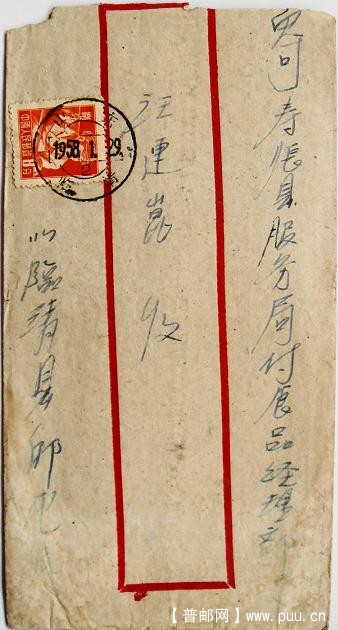 寿張县服务局付食品经理部
汪連崑 收
臨清县邮电
中国人民邮政
1958.1.29
【普邮网】www.puu.cn